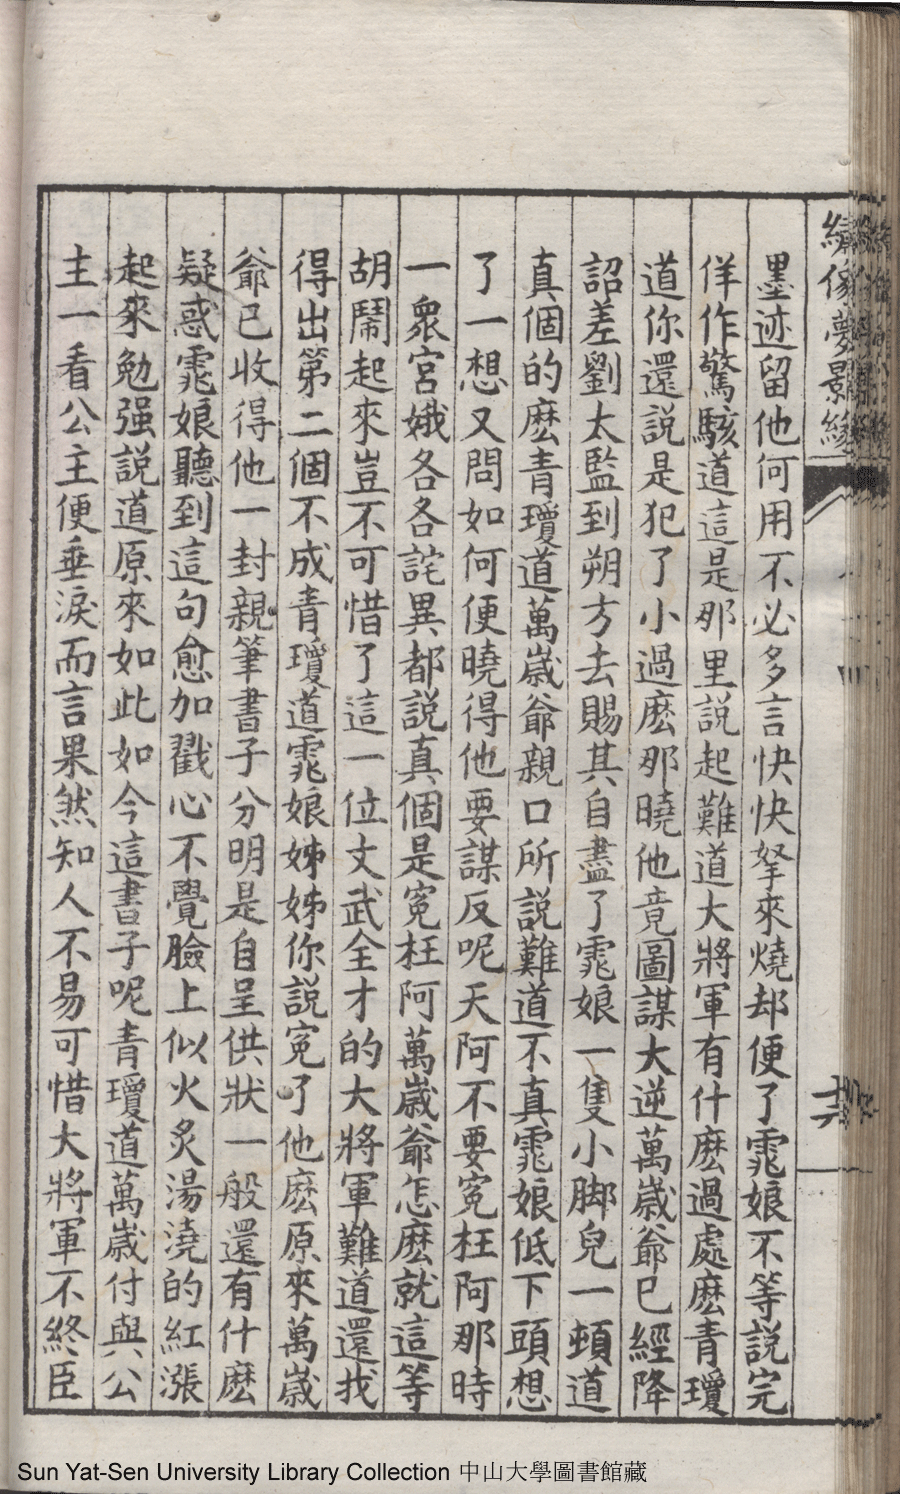 繡像夢影緣
墨迹留他何用不必多言快快拏來燒却便了霓娘不等說完
佯作驚駭道這是那里說起難道大將軍有什麽過處麽青瓊
道你還說是犯了小過麽那曉他竟圖謀大逆萬歲爺已經降
詔差劉太監到朔方去賜其自盡了霓娘一隻小脚兒一頓道
真個的麽青瓊道萬歲爺親口所説難道不真霓娘低下頭想
了一想又問如何便曉得他要謀反呢天阿不要寃枉阿那時
一衆宮娥各各詫異都説真個是寃枉阿萬歲爺怎麽就這等
胡鬧起來豈不可惜了這一位文武全才的大將軍難道還找
得出第二個不成青瓊道霓娘姊姊你説寃了他麽原來萬歲
爺已收得他一封親筆書子分明是自呈供狀一般還有什麽
疑惑霓娘聽到這句愈加戳心不覺臉上似火炙湯澆的紅漲
起來勉强説道原來如此如今這書子呢青瓊道萬歲付與公
主一看公主便垂淚而言果然知人不易可惜大將軍不終臣
Sun Yat-Sen University Library Collection 中山大學圖書館藏